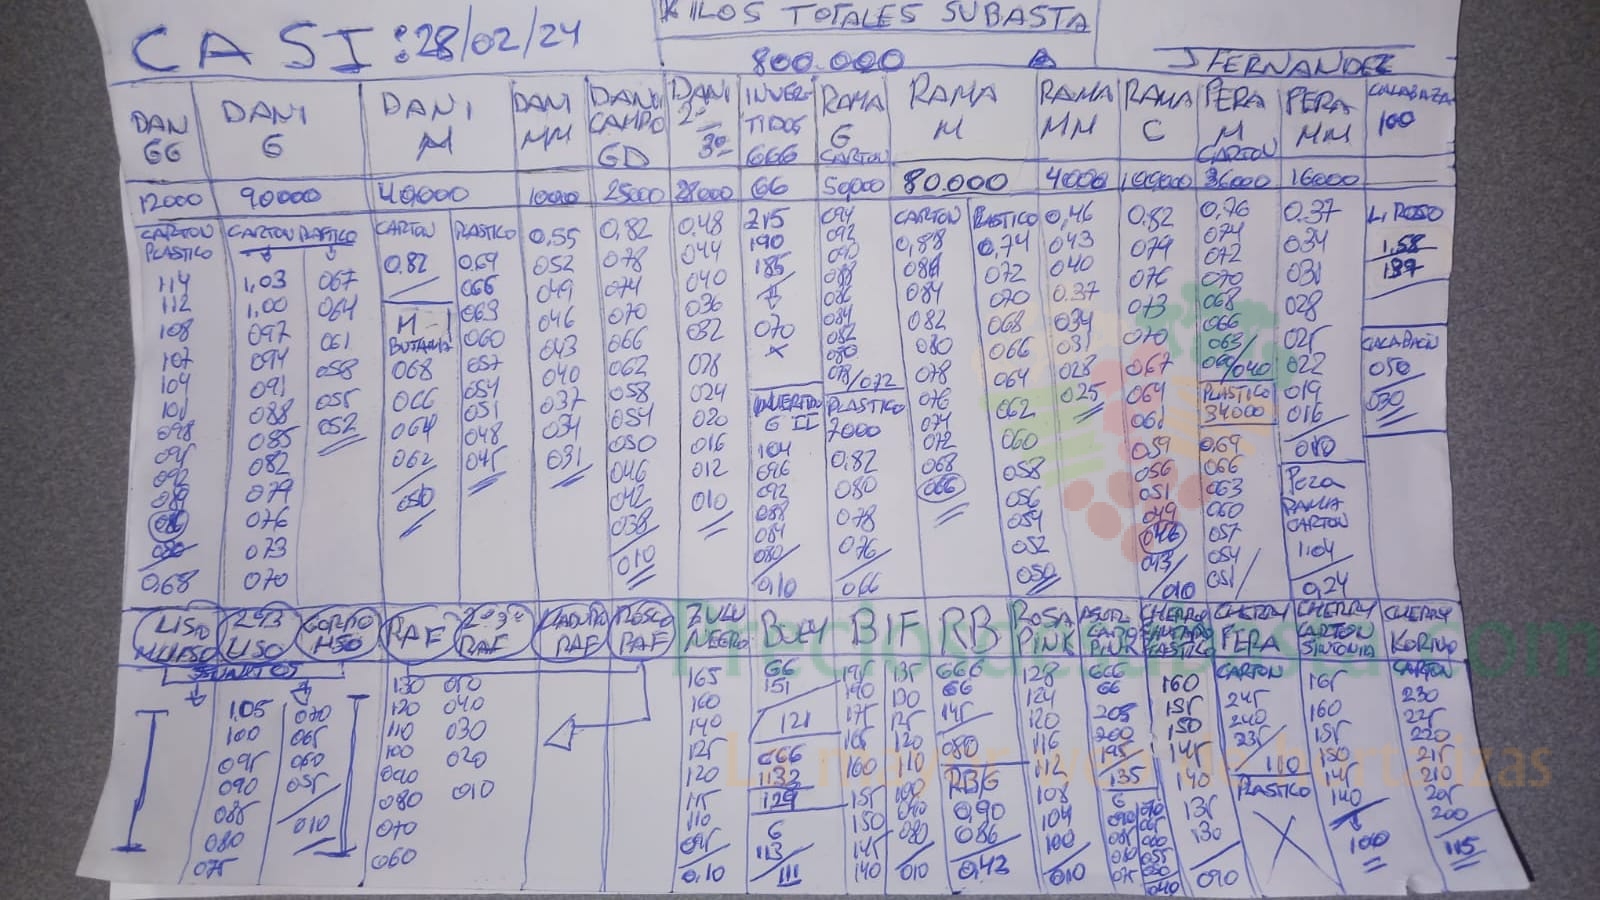 CASI: 28/02/24
KILOS TOTALES SUBASTA
800.000
J FERNANDEZ
DANI GG
DANI G
DANI M
DANI MM
DANI CAMPO GD
DANI 2ª 3ª
INVERTIDOS 666
RAMA G CARTON
RAMA M
RAMA MM
RAMA C
PERA M CARTON
PERA MM
CALABAZA 100
12000
90000
40000
10000
25000
28000
GG
50000
80.000
4000
36000
16000
CARTON PLASTICO
114
112
108
107
104
101
098
095
092
089
086
080
0,68
CARTON
1,03
1,00
097
094
091
088
085
082
079
076
073
070
PLASTICO
067
064
061
058
055
052
CARTON
0.82
M
BUTANA
068
066
064
062
050
PLASTICO
0.69
066
063
060
057
054
051
048
045
0,55
052
049
046
043
040
037
034
031
0,82
078
074
070
066
062
058
054
050
046
042
038
010
0,48
044
040
036
032
028
024
020
016
012
010
215
190
185
070
INVERTIDO G II
104
096
092
088
084
080
010
094
092
090
088
086
084
082
080
078/072
PLASTICO
7000
0.82
080
078
076
066
CARTON
0,88
086
084
082
080
078
076
074
072
068
066
PLASTICO
0,74
072
070
068
066
064
062
060
058
056
054
052
050
0,46
043
040
0.37
034
031
028
025
0.82
079
076
073
070
067
064
061
059
056
051
049
046
043
010
0,76
074
072
070
068
066
063
060/040
PLASTICO
34000
0.69
066
063
060
057
054
051
0.37
034
031
028
025
022
019
016
010
Pera
RAMA
CARTON
1.04
0,24
LIROSO
1,58
137
CALABACIN
050
030
LISO
2ª3ª LISO
GORDO LISO
RAF
2ª3ª RAF
RAF
RAF
ZULU NEGRO
BUEY
BIF
RB
ROSA PINK
PINK
CHERRY PLASTICO
CHERRY PERA
CHERRY CARTON SINTONIA
CHERRY KORINO
1.05
100
095
090
085
080
075
070
065
060
055
010
130
120
110
100
090
080
070
060
050
040
030
020
010
165
160
140
125
120
115
110
095
0,10
GG
151
121
666
1132
129
G
113
111
195
190
175
165
160
155
150
145
140
135
130
125
120
110
100
090
080
010
666
GG
145
080
RBG
0,90
086
0,42
128
124
120
116
112
108
104
100
010
666
GG
205
200
195
135
G
160
155
150
145
140
135
130
090
CARTON
245
240
235
110
PLASTICO
165
160
155
150
145
140
100
CARTON
230
225
220
215
210
205
200
115